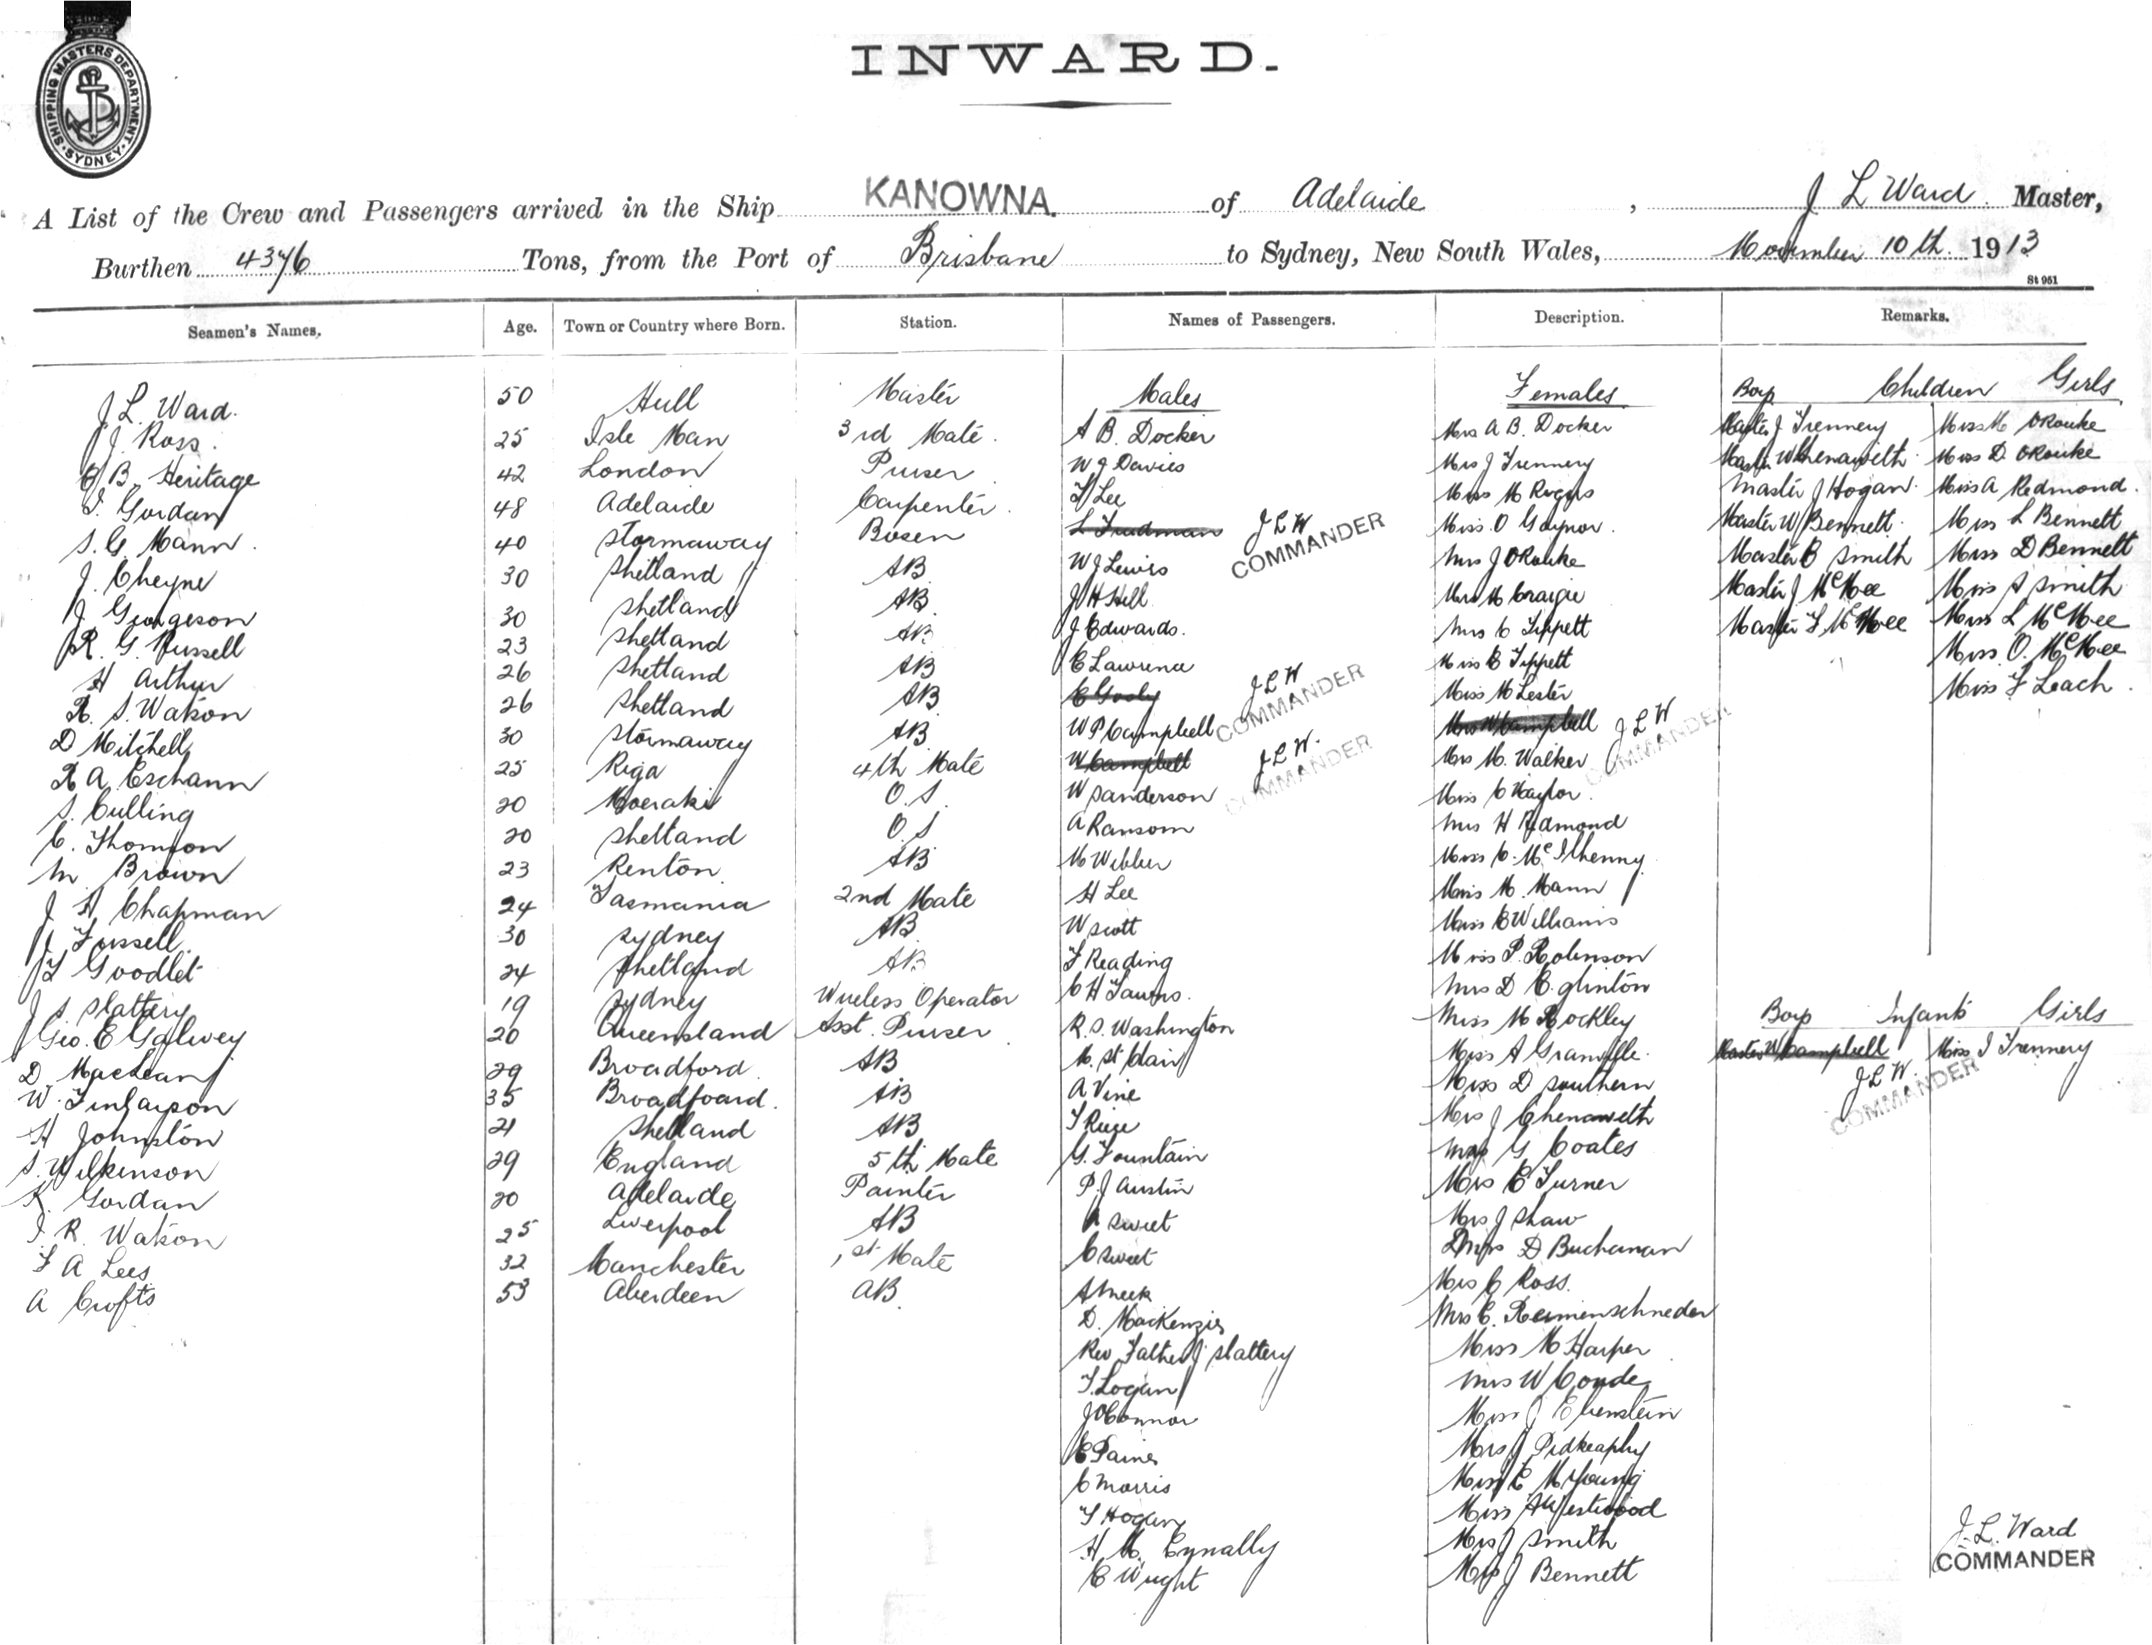 SHIPPING MASTERS DEPARTMENT
SYDNEY
INWARD.
A List of the Crew and Passengers arrived in the Ship KANOWNA. of Adelaide, J L Ward Master,
Burthen 4376 Tons, from the Port of Brisbane to Sydney, New South Wales, November 10th 1913
St 951
Seamen's Names. Age. Town or Country where Born. Station. Names of Passengers. Description. Remarks.
J L Ward. 50 Hull Master Males Females Boys Children Girls
J. Ross. 25 Isle Man 3rd Mate. A B. Docker Mrs A B. Docker Master J Trennery Miss M ORouke
B. Heritage 42 London Purser W J Davies Mrs J Trennery Master W Chenawelth Miss D ORouke
Gordan 48 Adelaide Carpenter. Lee Miss M Master J Hogan. Miss A Redmond.
S. G. Mann. 40 Stornaway Bosen J L W COMMANDER Miss O Gaynor. Master W Bennett. Miss L Bennett
J. Cheyne 30 Shetland AB W J Lewis Mrs J ORouke Master B Smith Miss D Bennett
J. Georgeson 30 Shetland AB J H Hill Mrs M Craigie Master J McKee Miss A Smith
R. G. Russell 23 Shetland AB J Edwards. Mrs C Tippett Master F McKee Miss L McKee
H Arthur 26 Shetland AB C Lawrence Miss E Tippett Miss O. McKee
R. S. Watson 26 Shetland AB J L W COMMANDER Miss M Lester Miss F Leach.
D Mitchell 30 Stornaway AB W P Campbell Mrs W Campbell J L W COMMANDER
R A Eschann 25 Riga 4th Mate W Campbell J L W. COMMANDER Mrs M. Walker
S. Culling 20 Moeraki O.S. W Sanderson Miss C Naylor.
C. Thomson 20 Shetland O S A Ransom Mrs H Redmond
M Brown 23 Renton AB M Webber Miss C. McIlhenny
J H Chapman 24 Tasmania 2nd Mate H Lee Miss M. Mann
J Fussell 30 Sydney AB W Scott Miss E Williams
Goodlet 24 Shetland AB F Reading Miss P. Robinson
J S Slattery 19 Sydney Wireless Operator C H Mrs D Eglinton
Geo. E Galwey 20 Queensland Asst. Purser R. S. Washington Miss M Rockley Boys Infants Girls
D MacLean 29 Broadford. AB M. St Clair Miss A Master W Campbell Miss I Trennery
W. Finlayson 35 Broadfoard. AB A Vine Miss D Southern J L W. COMMANDER
H Johnston 21 Shetland AB Mrs J Chenawelth
S. Wilkinson 29 England 5th Mate G. Fountain G Coates
K. Gordan 20 Adelaide Painter P. J Austin Mrs E Turner
R. Watson 25 Liverpool AB A Sweet Mrs J Shaw
F A Lees 32 Manchester 1st Mate C Sweet Mrs D Buchanan
A Crofts 53 Aberdeen AB. A Meek Mrs C Ross.
D. MacKenzie Mrs C. Reimenschneder
Rev Father J Slattery Miss M Harper
T. Logan Mrs W Conde
J OConnor Miss J Ebenstein
E Paine Mrs J
C Morris Miss E M Young
T Hogan Miss A Westwood
H. M. Mrs J Smith J. L. Ward
E Wright Mrs J Bennett COMMANDER